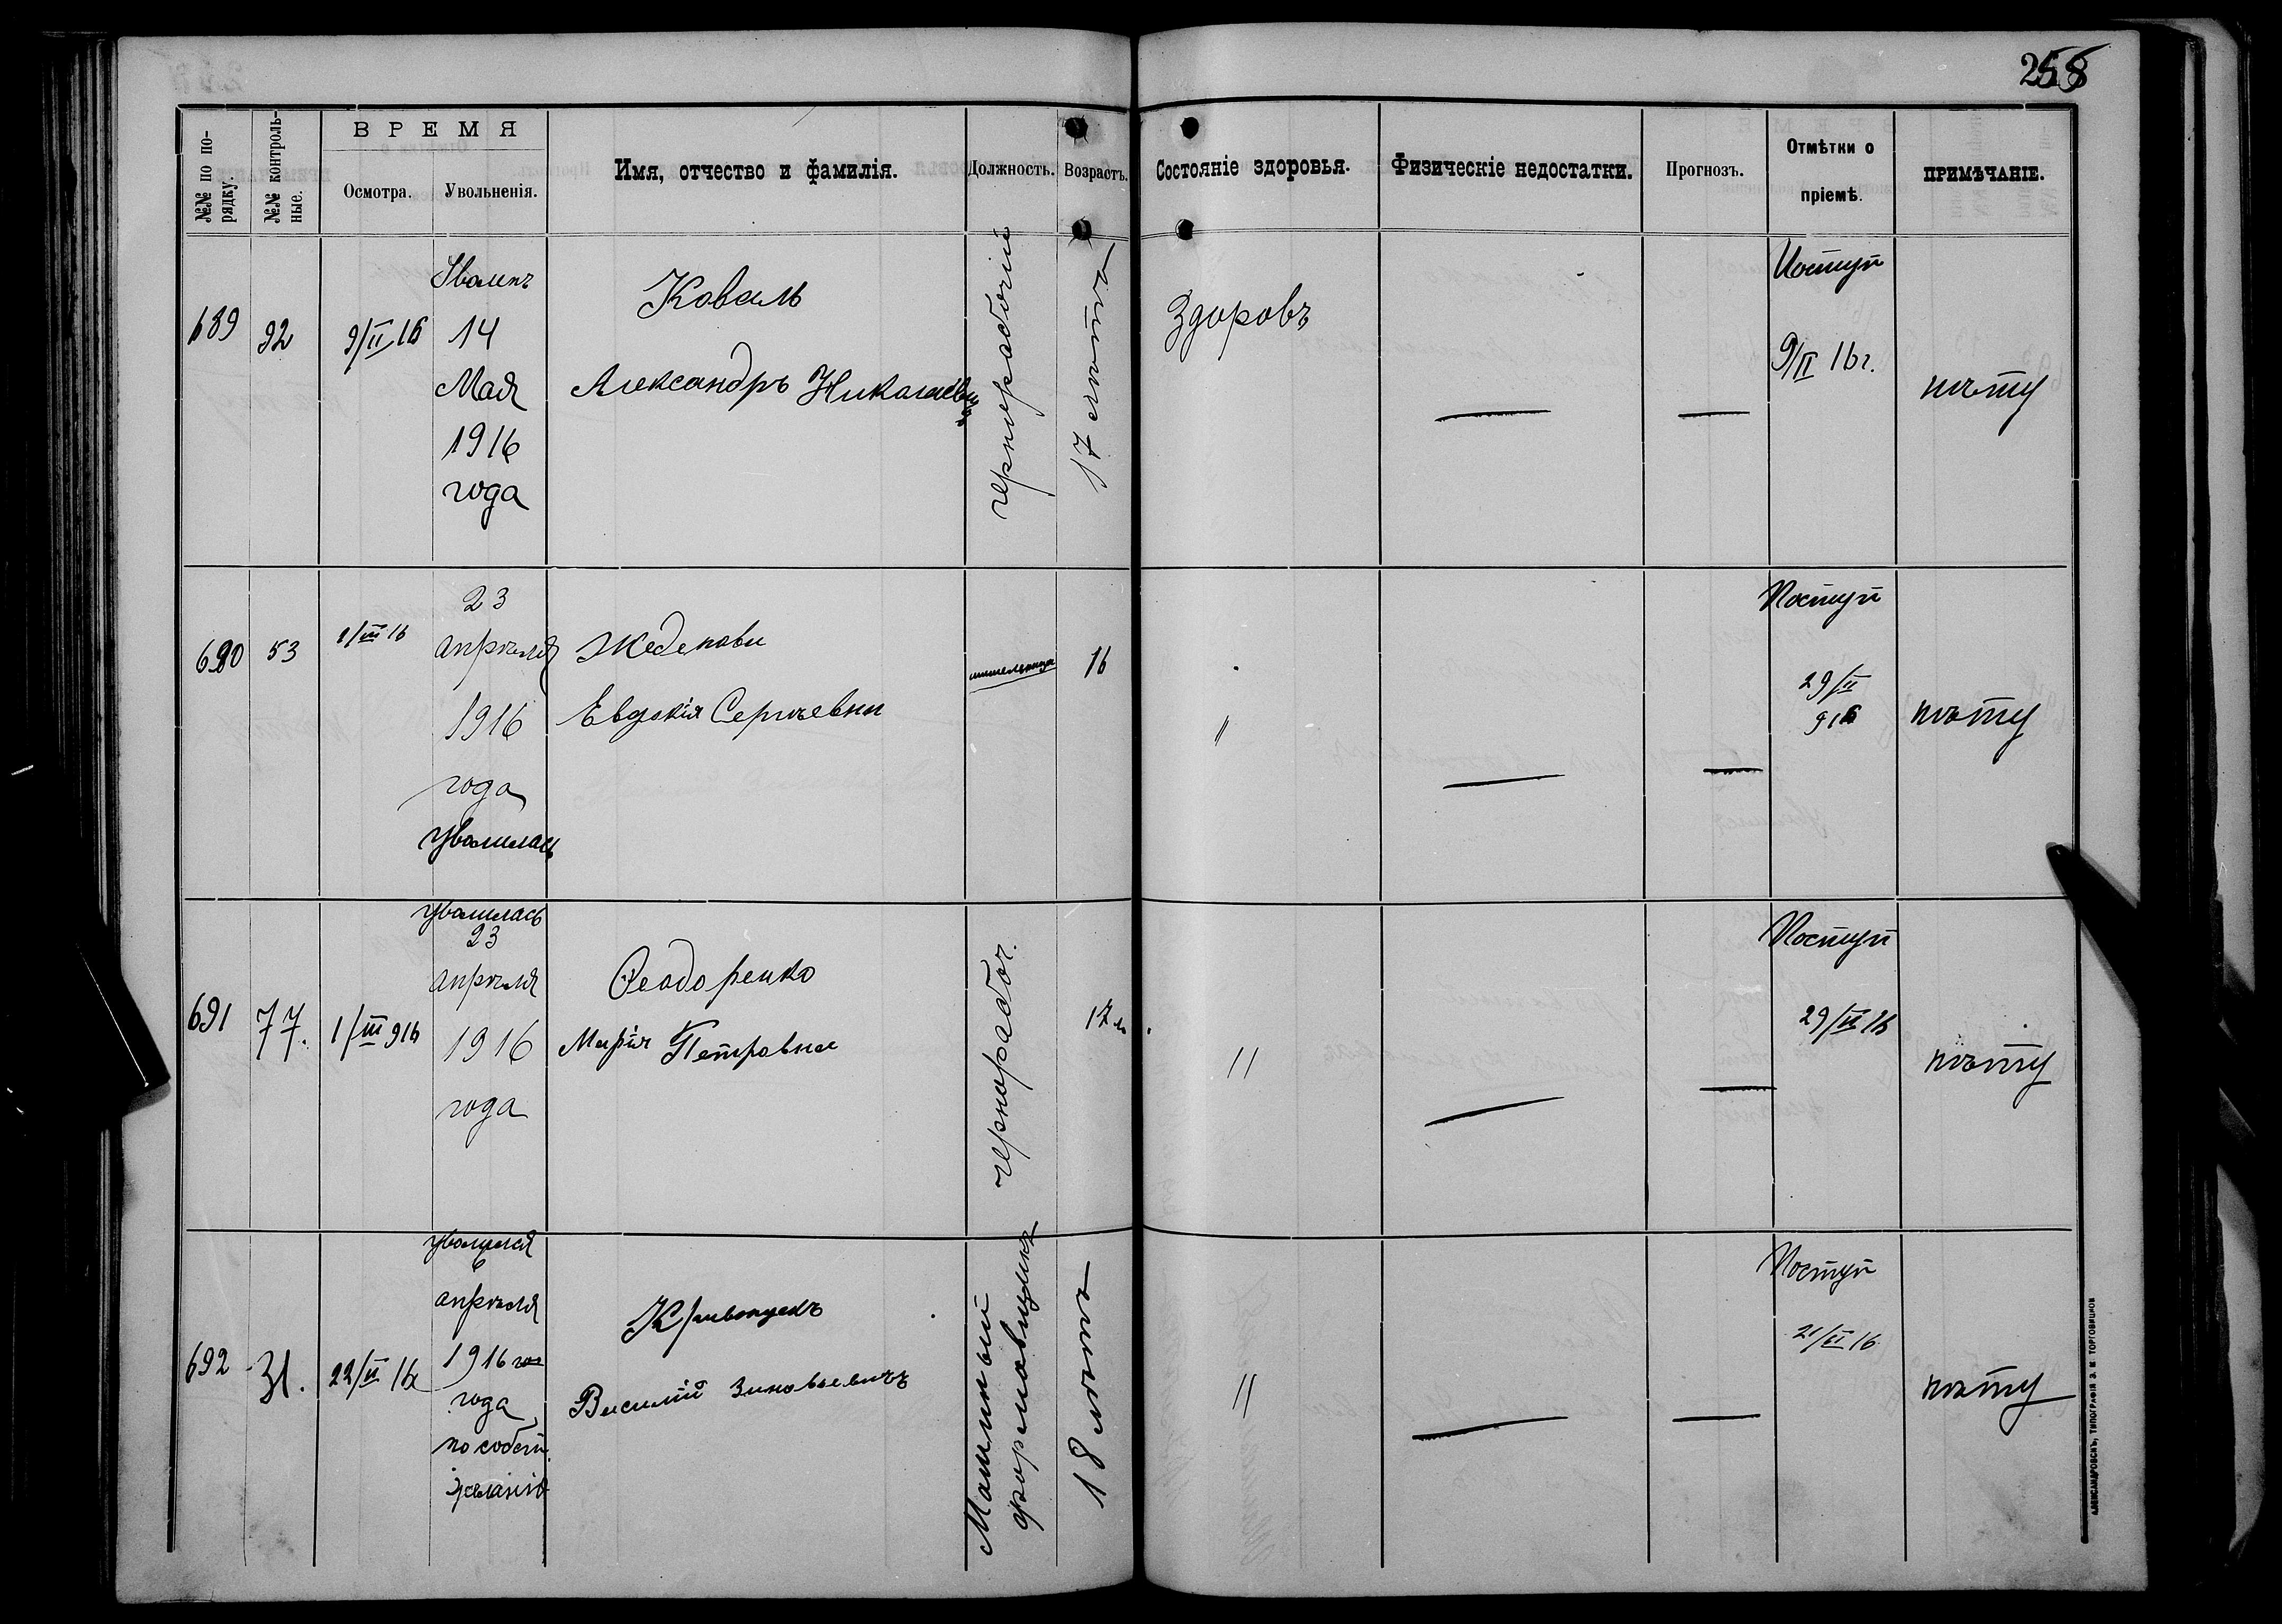 258
№№ по по-
рядку.
№№ контроль-
ные.
ВРЕМЯ
Осмотра.
Увольненія.
Имя, отчество и фамилія.
Должность.
Возрастъ.
Состояніе здоровья.
Физическіе недостатки.
Прогнозъ.
Отмѣтки о
пріемѣ.
ПРИМѢЧАНІЕ.
689
92
9/II 16
14
Мая
1916
года
Коваль
Александръ Николаевичъ
чернорабочій
17 лѣтъ
Здоровъ
—
—
Поступ
9/II 16 г.
нѣту
690
53
1/III 16
23
апрѣля
1916
года
уволилась
Евдокія Сергѣевна
16
"
—
—
Поступ
29/II
916
нѣту
691
77.
1/III 916
уволилась
23
апрѣля
1916
года
Ѳеодоренко
Марія Петровна
чернорабоч.
17 л.
"
—
—
Поступ
29/II 16
нѣту
692
31.
22/II 16
уволился
6
апрѣля
1916
года
по собств.
желанію
Василій Зиновьевичъ
Машинный
формовщикъ
18 лѣтъ
"
—
—
Поступ
21/II 16
нѣту
АЛЕКСАНДРОВСКЪ, ТИПОГРАФІЯ З. М. ТОРГОВИЦКОВ